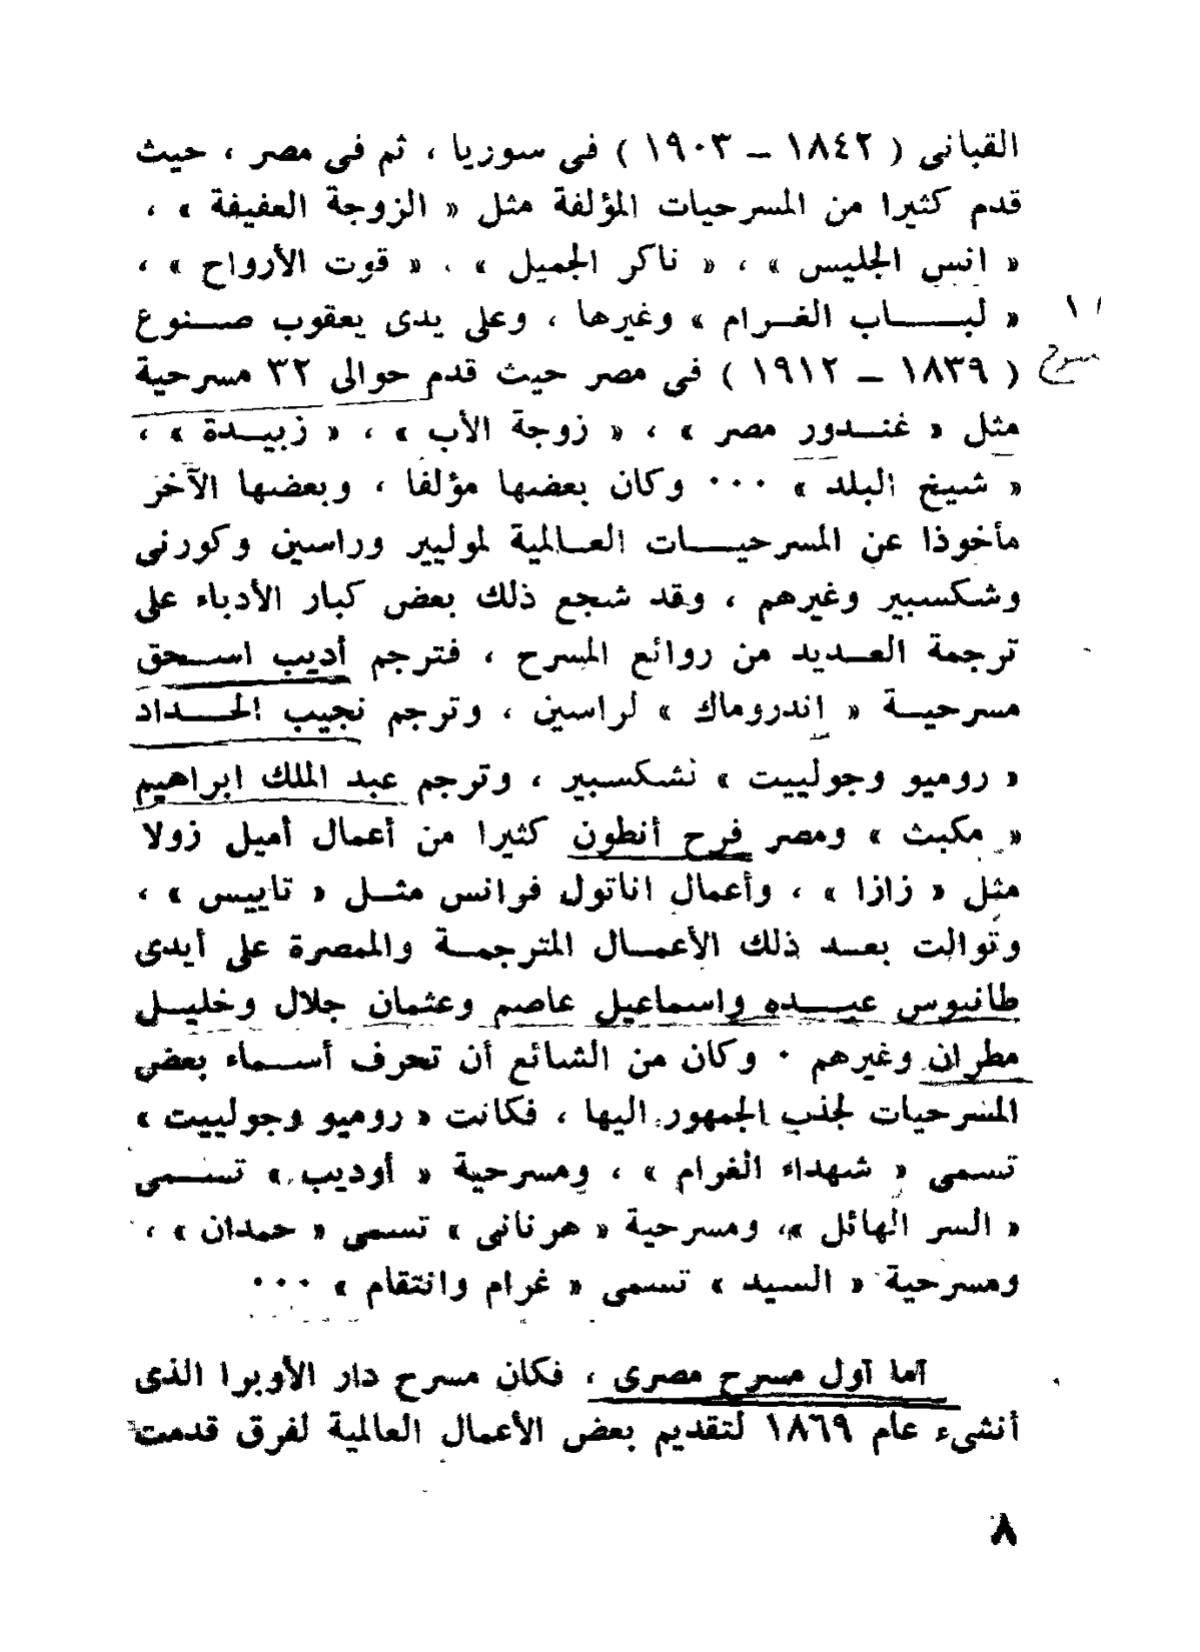 القبانى ( ١٨٤٢ – ١٩٠٣ ) فى سوريا ، ثم فى مصر ، حيث
قدم كثيرا من المسرحيات المؤلفة مثل « الزوجة العفيفة » ،
« انس الجليس » ، « ناكر الجميل » ، « قوت الأرواح » ،
« لبـــاب الغــرام » وغيرها ، وعلى يدى يعقوب صــنوع
( ١٨٣٩ – ١٩١٢ ) فى مصر حيث قدم حوالى ٣٢ مسرحية
مثل « غنــدور مصر » ، « زوجة الأب » ، « زبيــدة » ،
« شيخ البلد » ۰۰۰ وكان بعضها مؤلفا ، وبعضها الآخر
مأخوذا عن المسرحيــات العــالمية لموليير وراسين وكورنى
وشكسبير وغيرهم ، وقد شجع ذلك بعض كبار الأدباء على
ترجمة العــديد من روائع المسرح ، فترجم أديب اســحق
مسرحيــة « اندروماك » لراسين ، وترجم نجيب الحــداد
« روميو وجولييت » لشكسبير ، وترجم عبد الملك ابراهيم
« مكبث » ومصر فرح أنطون كثيرا من أعمال أميل زولا
مثل « زازا » ، وأعمال اناتول فرانس مثــل « تاييس » ،
وتوالت بعــد ذلك الأعمــال المترجمــة والممصرة على أيدى
طانيوس عبــده واسماعيل عاصم وعثمان جلال وخليــل
مطران وغيرهم ۰ وكان من الشائع أن تحرف أســماء بعض
المسرحيات لجذب الجمهور اليها ، فكانت « روميو وجولييت »
تسمى « شهداء الغرام » ، ومسرحية « أوديب » تســمى
« السر الهائل » ، ومسرحية « هرنانى » تسمى « حمدان » ،
ومسرحية « السيد » تسمى « غرام وانتقام » ۰۰۰
أما أول مسرح مصرى ، فكان مسرح دار الأوبرا الذى
أنشىء عام ١٨٦٩ لتقديم بعض الأعمال العالمية لفرق قدمت
٨